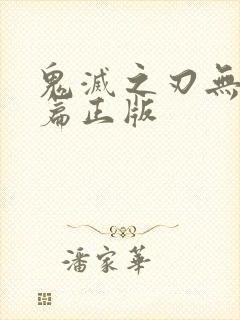 鬼滅之刃無
篇正版
潘家華